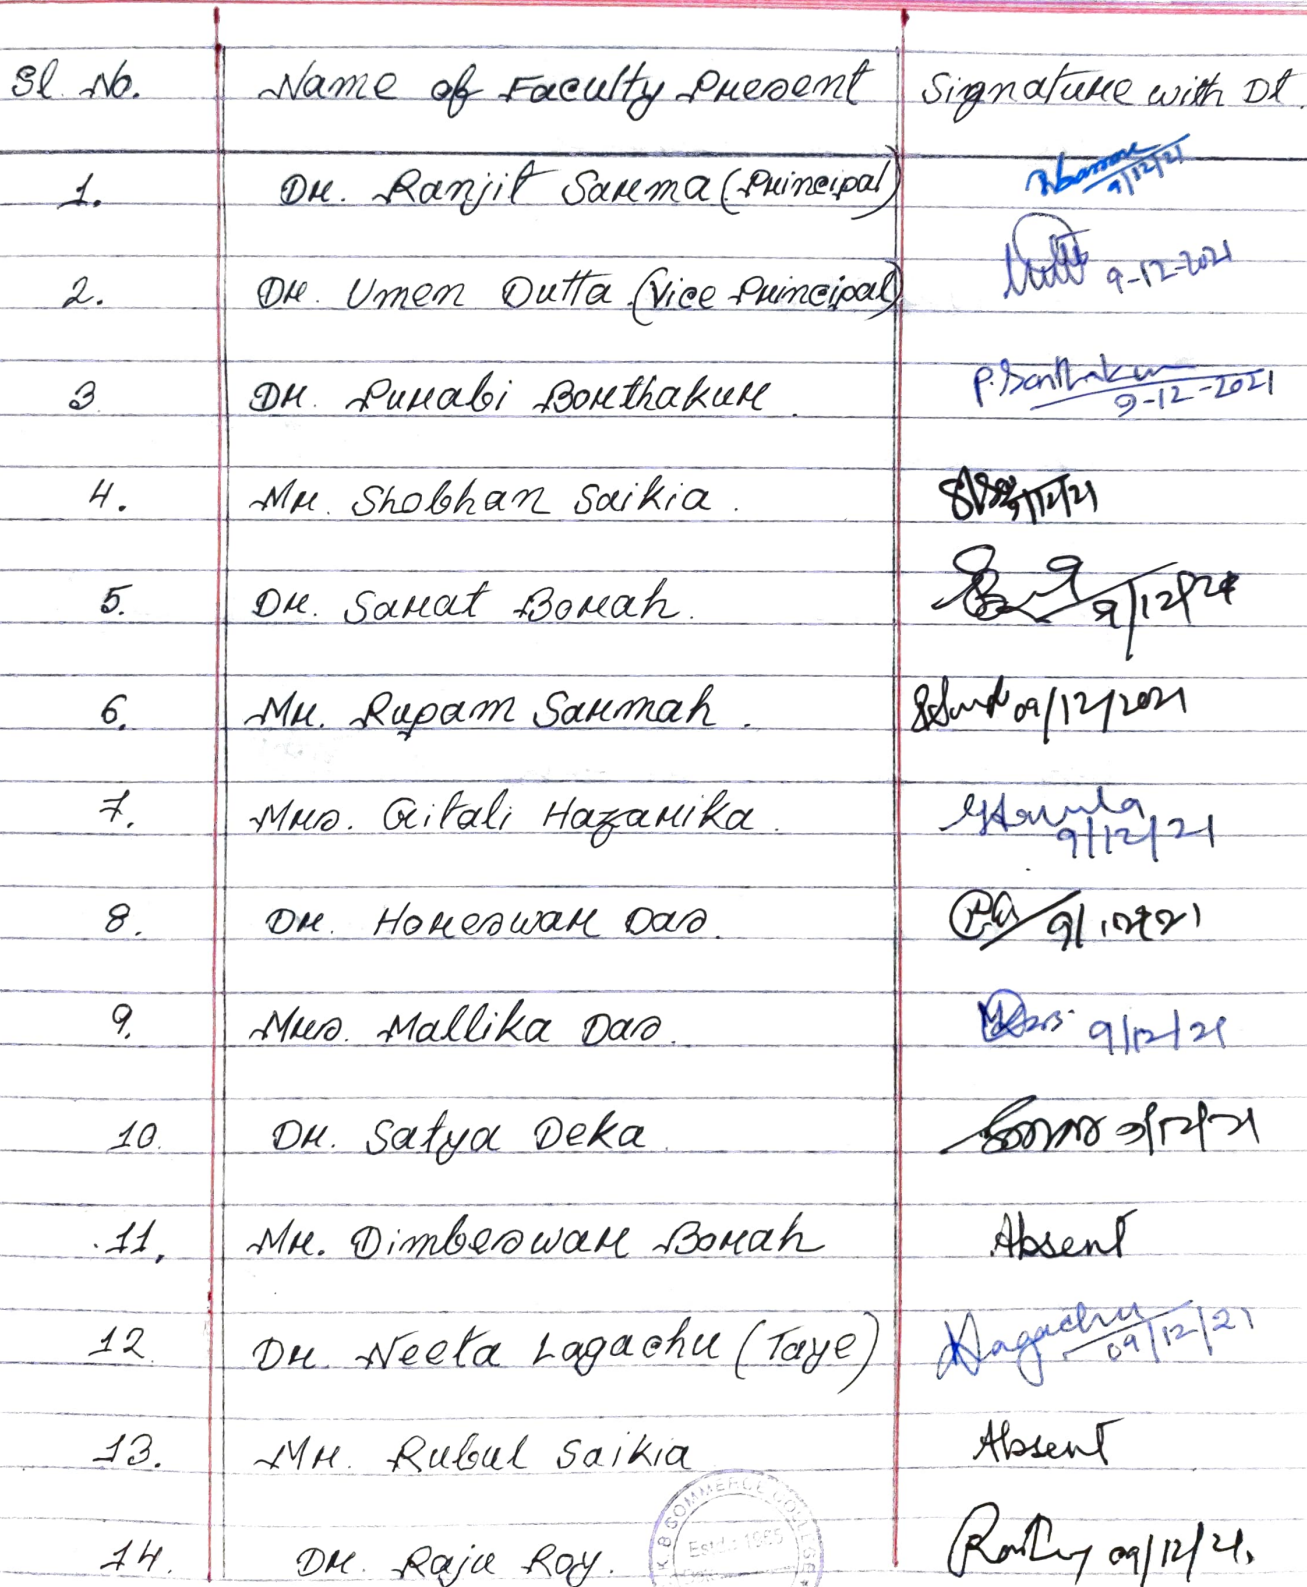 Sl. No. Name of Faculty Present Signature with Dt.
1. Dr. Ranjit Sarma (Principal) 9/12/21
2. Dr. Umen Dutta (Vice Principal) 9-12-2021
3 Dr. Purabi Borthakur. P. Borthakur 9-12-2021
4. Mr. Shobhan Saikia. 9/12/21
5. Dr. Sarat Borah. 9/12/21
6. Mr. Rupam Sarmah. 09/12/2021
7. Mrs. Gitali Hazarika. 9/12/21
8. Dr. Horeswar Das. 9/12/21
9. Mrs. Mallika Das. 9/12/21
10. Dr. Satya Deka 9/12/21
11. Mr. Dimbeswar Borah Absent
12 Dr. Neeta Lagachu (Taye) Lagachu 09/12/21
13. Mr. Rubul Saikia Absent
14. Dr. Raju Roy. 09/12/21.
K B COMMERCE COLLEGE
Estd.: 1985